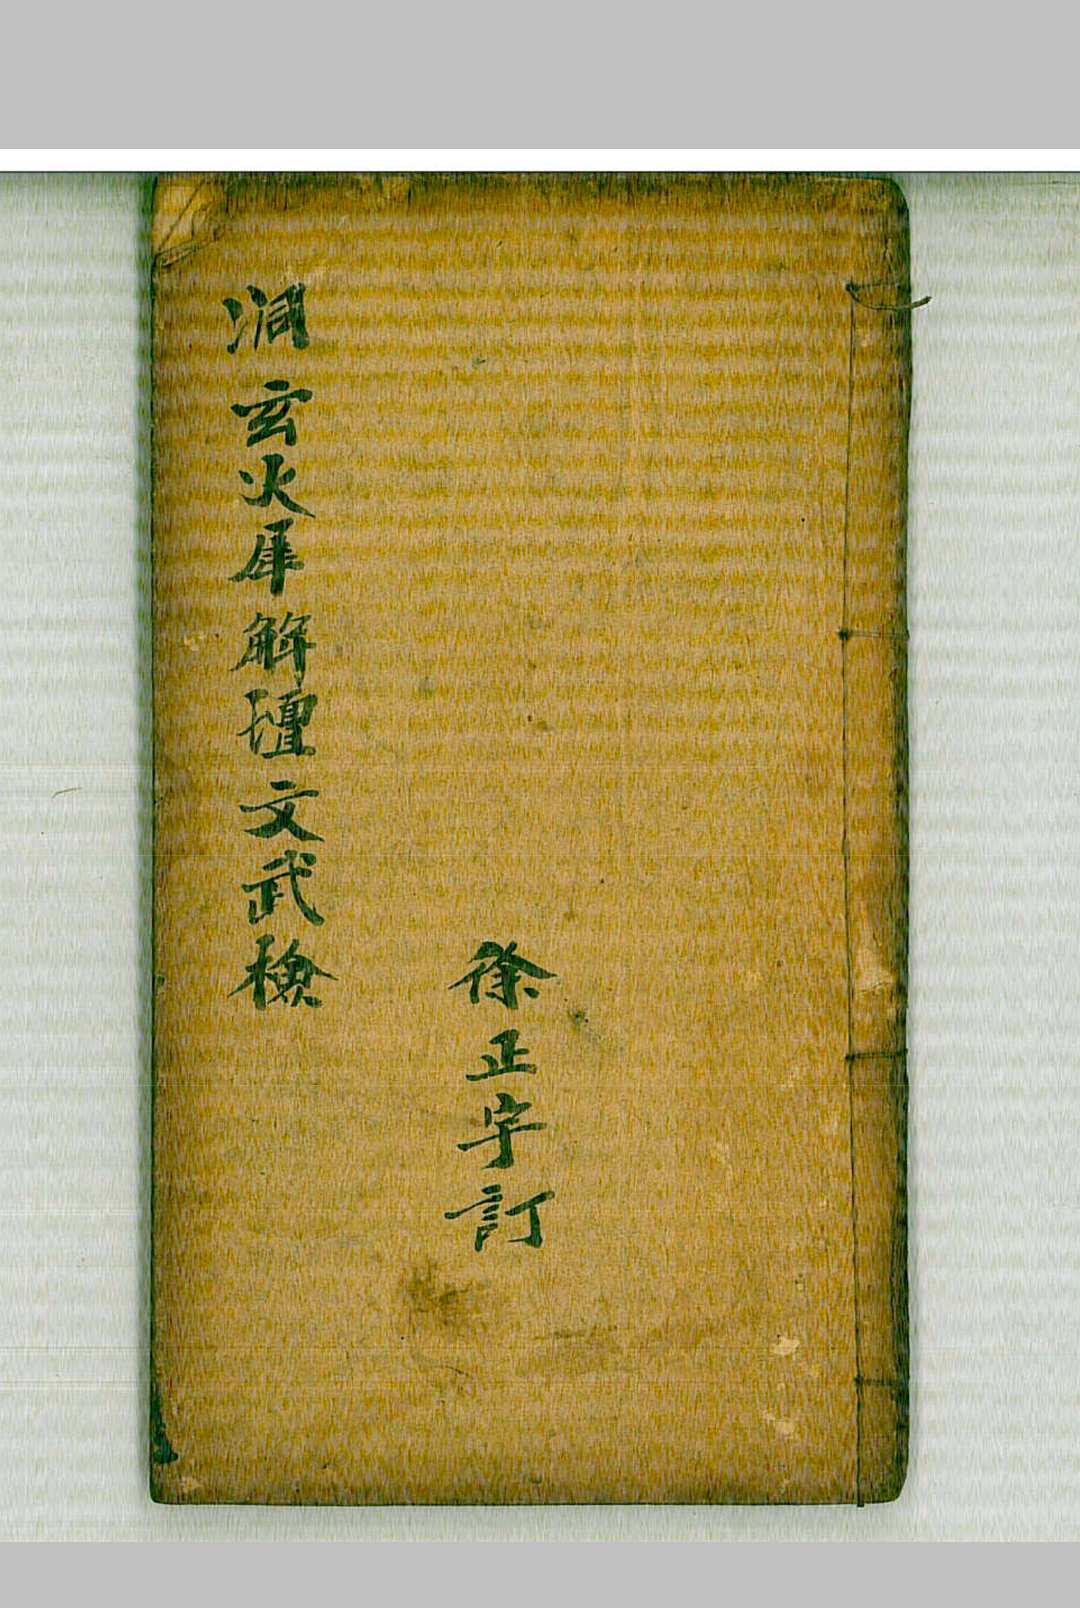 徐正字訂
洞玄火犀解壇文武檢